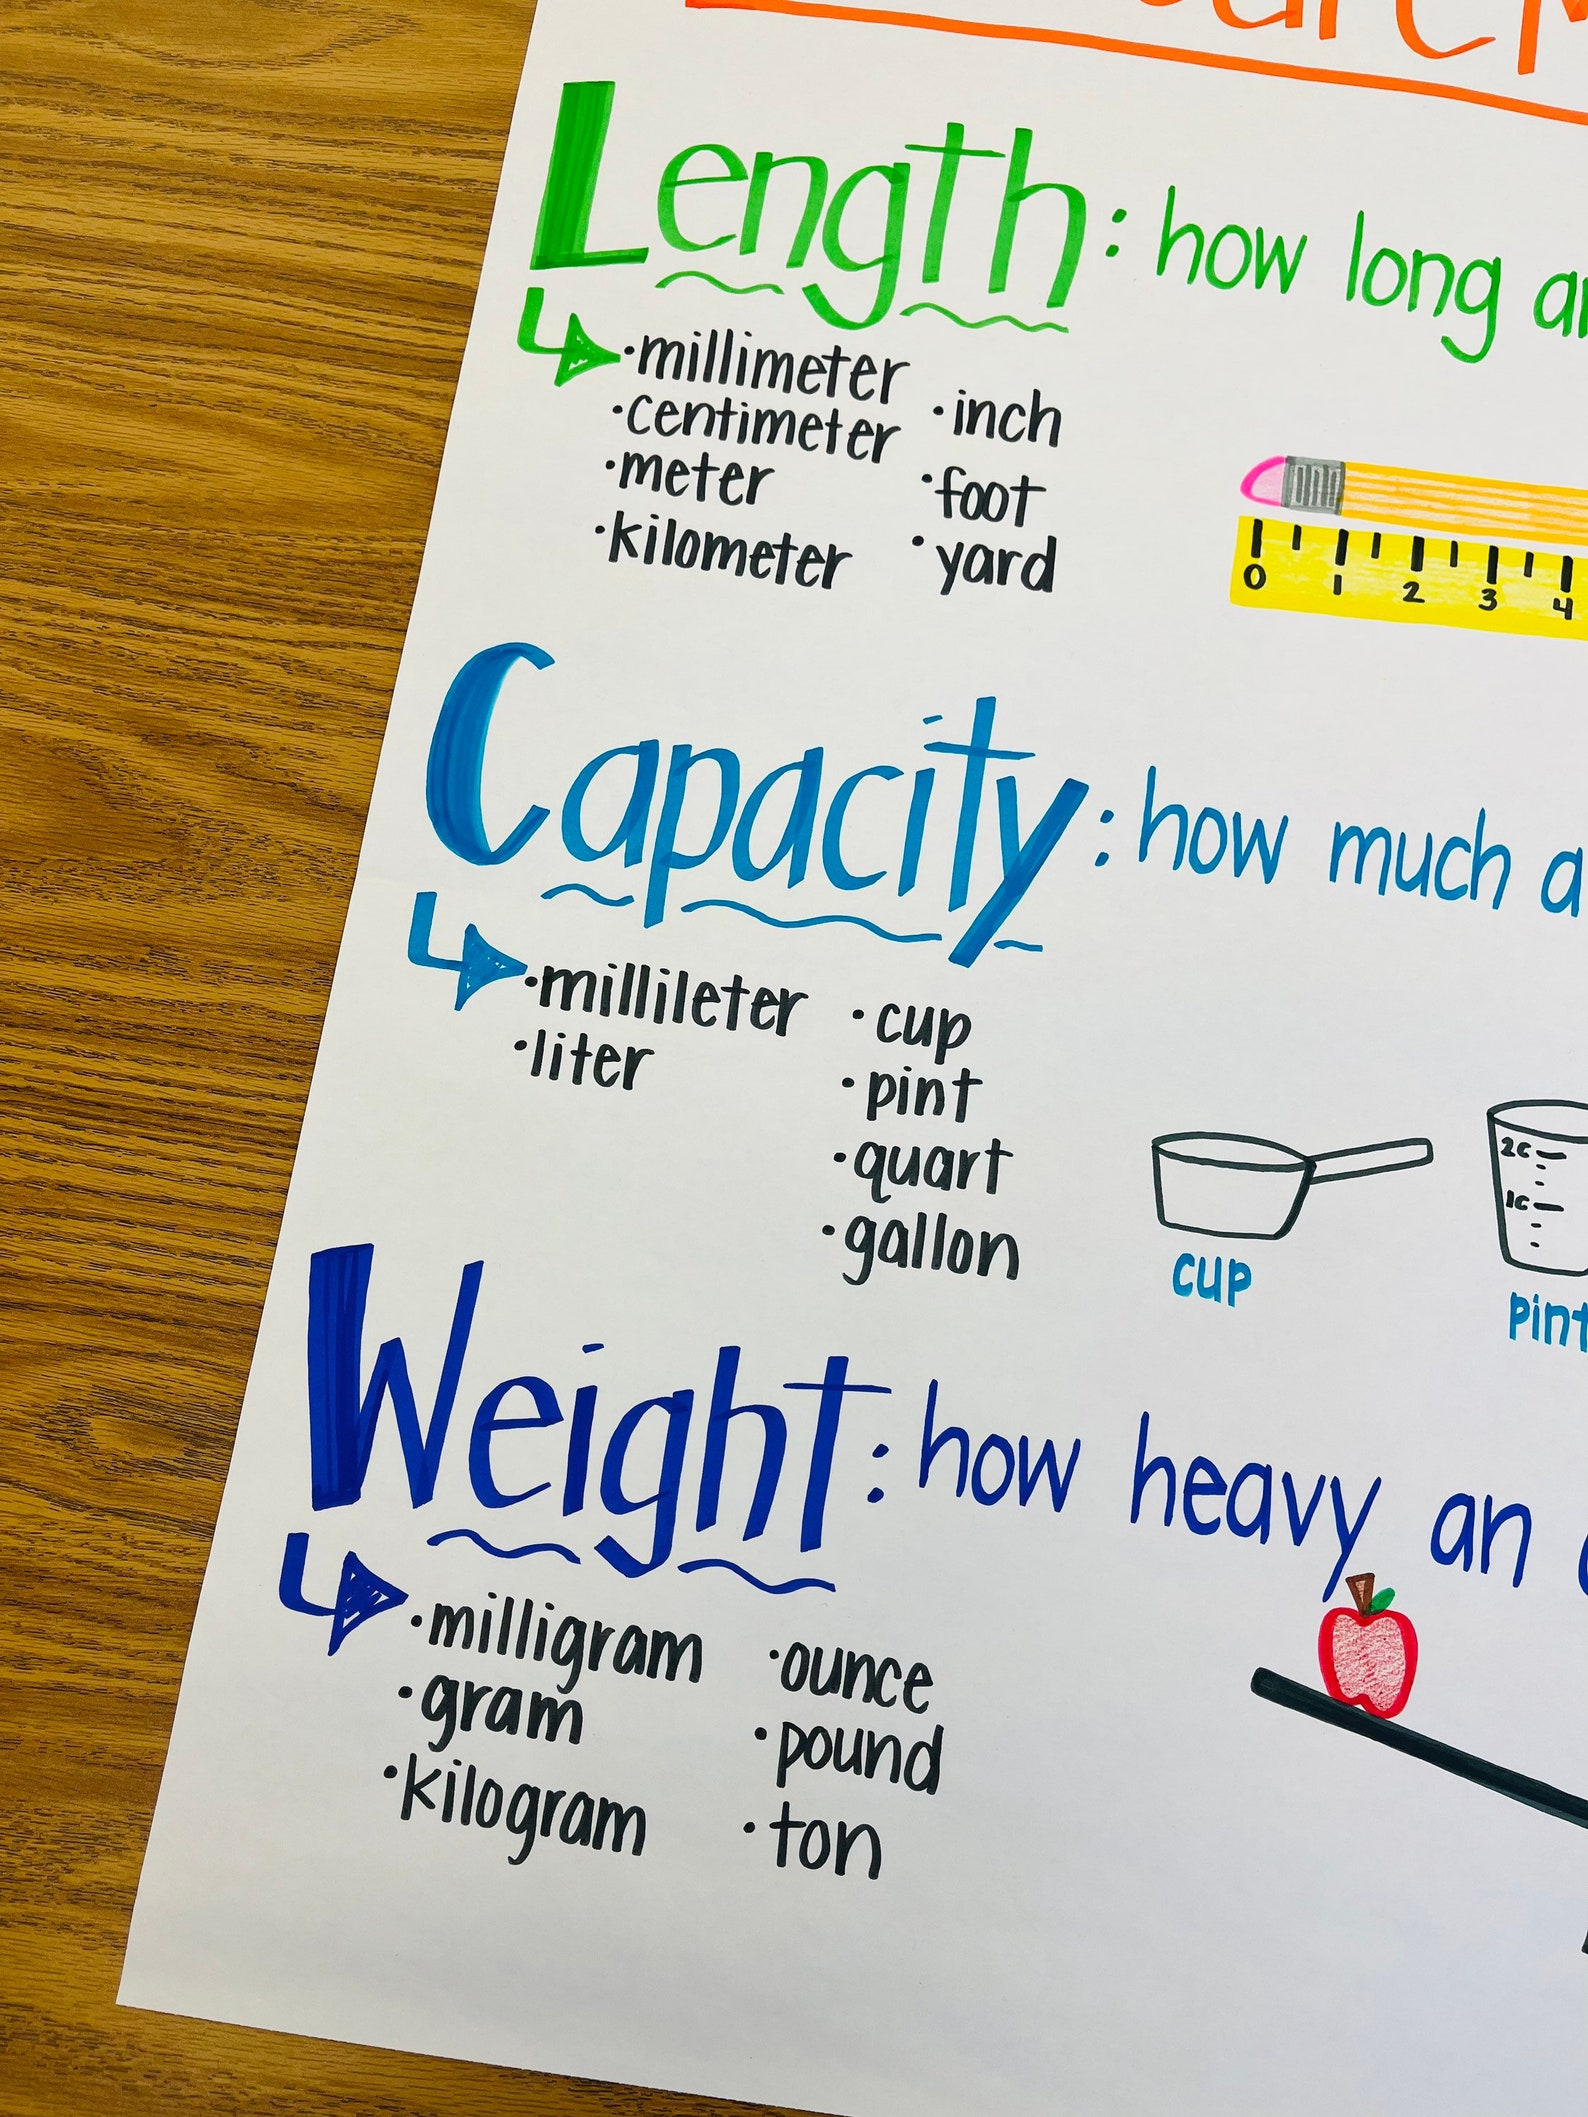 Length: how long
·millimeter
·centimeter
·meter
·kilometer
·inch
·foot
·yard
0 1 2 3 4
Capacity: how much a
·millileter
·liter
·cup
·pint
·quart
·gallon
2c
1c
cup
pint
Weight: how heavy an
·milligram
·gram
·kilogram
·ounce
·pound
·ton